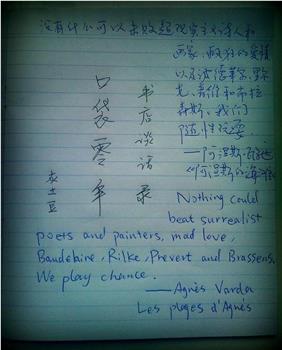 没有什么可以击败超现实主义诗人和
画家,疯狂的爱情
以及波德莱尔、里尔
克、普维和布拉
森斯。我们
随性玩耍。
——阿涅斯·瓦尔达
《阿涅斯的海滩》
书店谈话录
口袋零年
麦土豆
Nothing could
beat surrealist
poets and painters, mad love,
Baudelaire, Rilke, Prevert and Brassens.
We play chance.
——Agnès Varda
Les plages d'Agnès